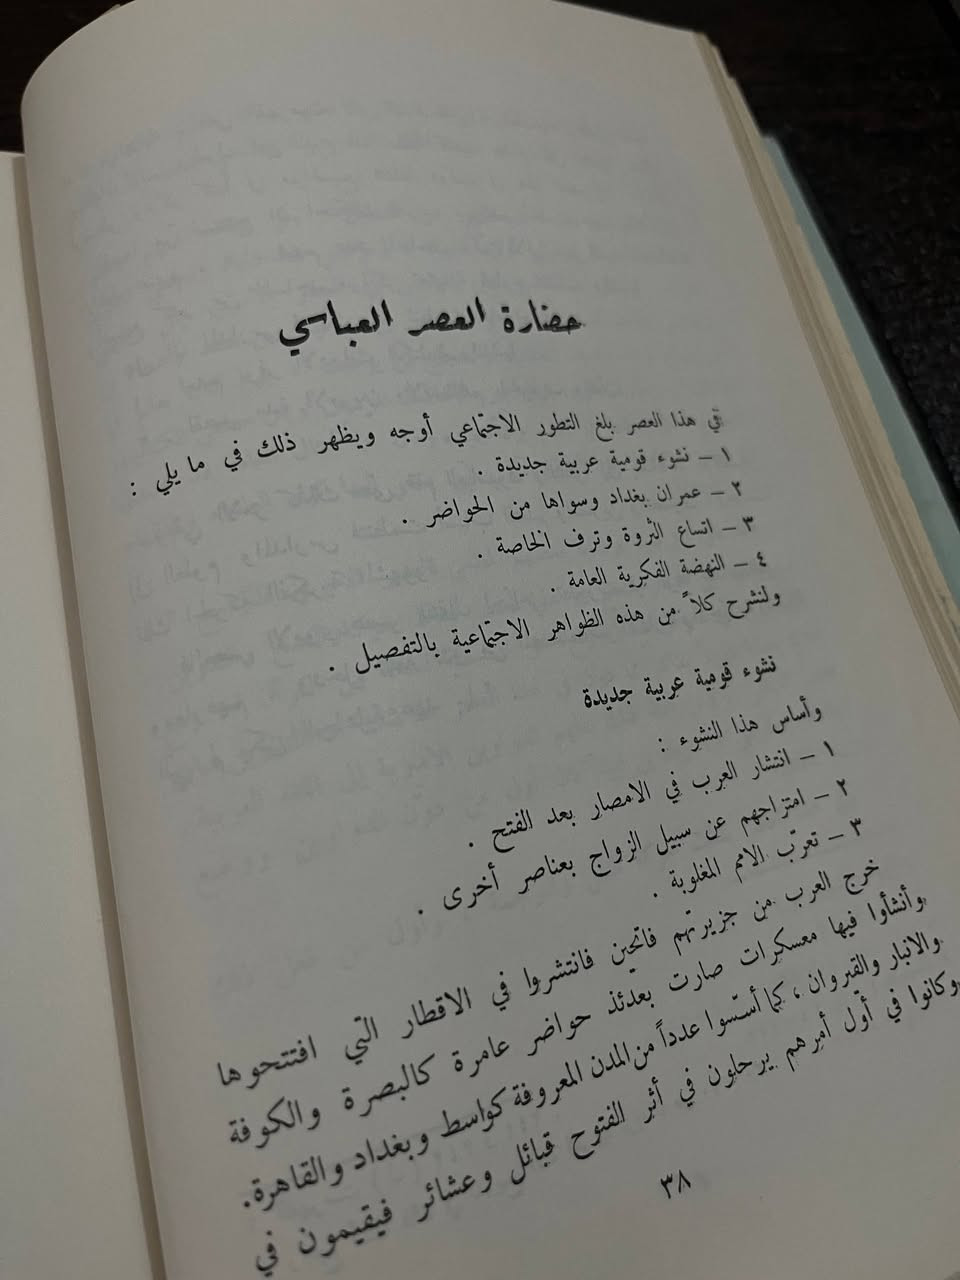 حضارة العصر العباسي
في هذا العصر بلغ التطور الاجتماعي أوجه ويظهر ذلك في ما يلي :
١ – نشوء قومية عربية جديدة .
٢ – عمران بغداد وسواها من الحواضر .
٣ – اتساع الثروة وترف الخاصة .
٤ – النهضة الفكرية العامة .
ولنشرح كلاً من هذه الظواهر الاجتماعية بالتفصيل .
نشوء قومية عربية جديدة
وأساس هذا النشوء :
١ – انتشار العرب في الامصار بعد الفتح .
٢ – امتزاجهم عن سبيل الزواج بعناصر أخرى .
٣ – تعرّب الامم المغلوبة .
خرج العرب من جزيرتهم فاتحين فانتشروا في الاقطار التي افتتحوها
وأنشأوا فيها معسكرات صارت بعدئذ حواضر عامرة كالبصرة والكوفة
والانبار والقيروان ، كما أسّسوا عدداً من المدن المعروفة كواسط وبغداد والقاهرة.
وكانوا في أول أمرهم يرحلون في أثر الفتوح قبائل وعشائر فيقيمون في
٣٨